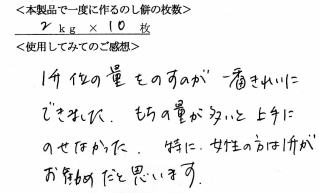 <本製品で一度に作るのし餅の枚数>
2kg × 10 枚
<使用してみてのご感想>
1升位の量をのすのが一番きれいに
できました。もちの量が多いと上手に
のせなかった。特に、女性の方は1升が
お勧めだと思います。